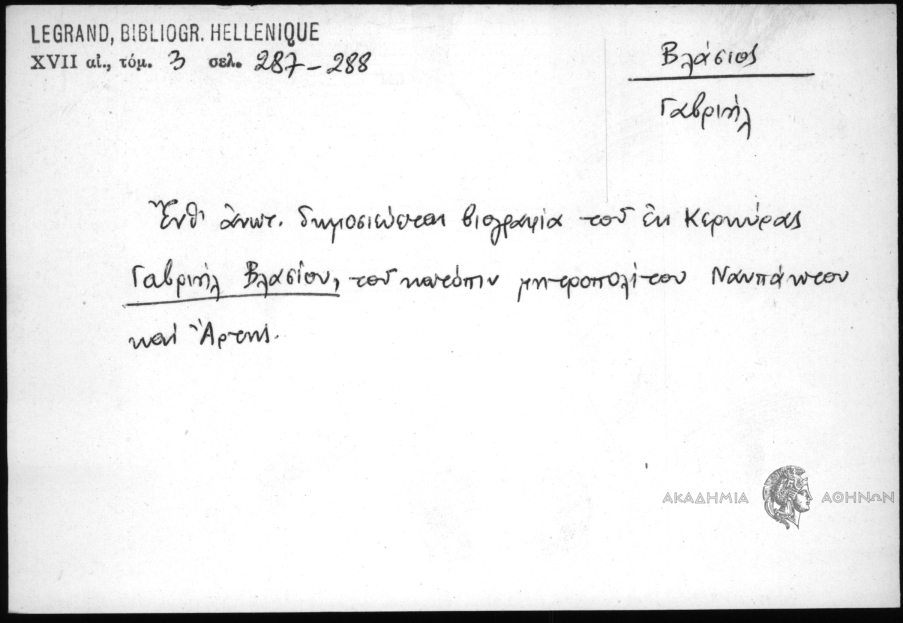 LEGRAND, BIBLIOGR. HELLENIQUE
XVII αἰ., τόμ. 3 σελ. 287-288
Βλάσιος
Γαβριήλ
Ἔνθ' ἀνωτ. δημοσιεύεται βιογραφία τοῦ ἐκ Κερκύρας
Γαβριήλ Βλασίου, τοῦ κατόπιν μητροπολίτου Ναυπάκτου
καί Ἄρτης.
ΑΚΑΔΗΜΙΑ ΑΘΗΝΩΝ